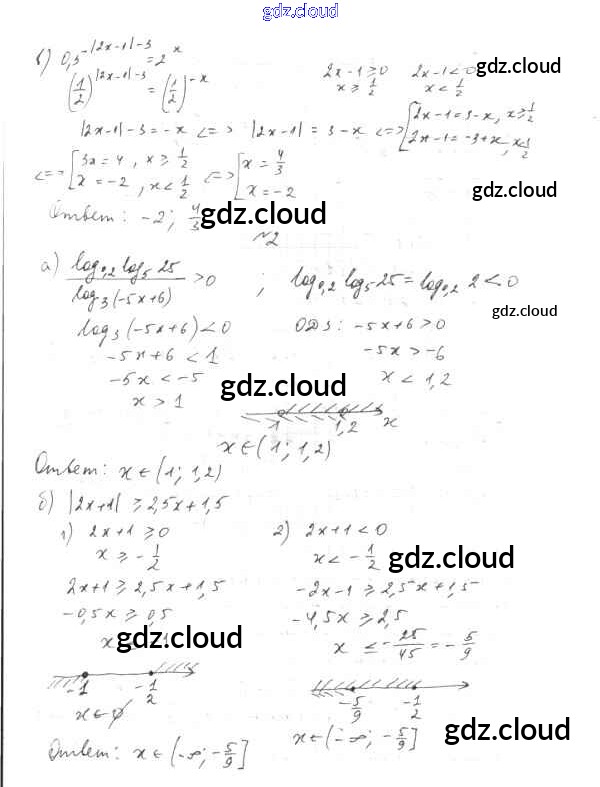 gdz.cloud
в) 0,5^{-|2x-1|-3} = 2^x
(1/2)^{|2x-1|-3} = (1/2)^{-x}
2x-1 ≥ 0 2x-1 < 0
x ≥ 1/2 x < 1/2
gdz.cloud
|2x-1|-3 = -x <=> |2x-1| = 3-x <=> [2x-1=3-x, x≥1/2
2x-1=-3+x, x<1/2
<=> [3x=4, x≥1/2 <=> [x=4/3
x=-2, x<1/2 x=-2
gdz.cloud
Ответ: -2; 4/3
gdz.cloud
№2
а) log_{0,2} log_5 25 / log_3(-5x+6) > 0 ; log_{0,2} log_5 25 = log_{0,2} 2 < 0
gdz.cloud
log_3(-5x+6) < 0 ОДЗ: -5x+6 > 0
-5x+6 < 1 -5x > -6
-5x < -5 x < 1,2
gdz.cloud
x > 1
1 1,2 x
gdz.cloud
x∈(1; 1,2)
Ответ: x∈(1; 1,2)
б) |2x+1| ≥ 2,5x+1,5
1) 2x+1 ≥ 0 2) 2x+1 < 0
x ≥ -1/2 x < -1/2
gdz.cloud
2x+1 ≥ 2,5x+1,5 -2x-1 ≥ 2,5x+1,5
-0,5x ≥ 0,5 -4,5x ≥ 2,5
gdz.cloud
x ≤ -25/45 = -5/9
-1 -1/2 -5/9 -1/2
x∈∅ x∈(-∞; -5/9]
gdz.cloud
Ответ: x∈(-∞; -5/9]
gdz.cloud